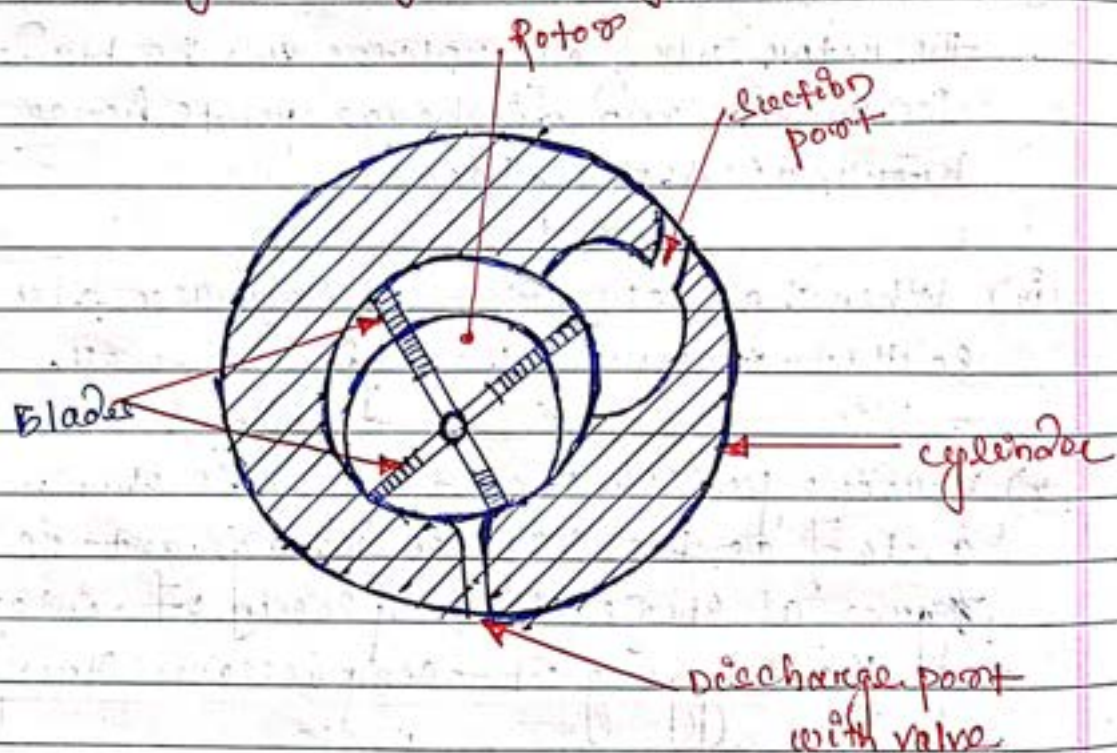 Rotor
Suction
port
Blades
cylinder
Discharge port
with valve